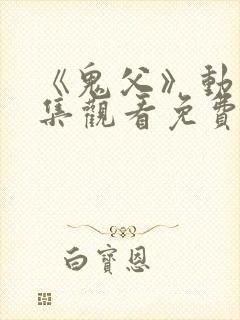 《鬼父》動
集觀看免費
白寶恩